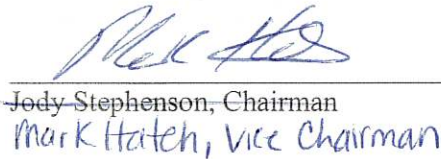 Mark Hatch
Jody Stephenson, Chairman
Mark Hatch, Vice Chairman